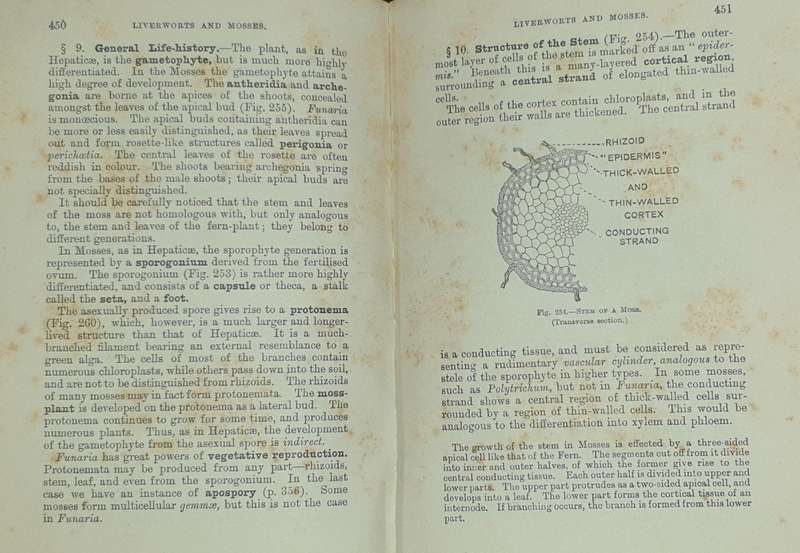 450
LIVERWORTS AND MOSSES.
§ 9. General Life-history.—The plant, as in the
Hepaticæ, is the gametophyte, but is much more highly
differentiated. In the Mosses the gametophyte attains a
high degree of development. The antheridia and arche-
gonia are borne at the apices of the shoots, concealed
amongst the leaves of the apical bud (Fig. 255). Funaria
is monœcious. The apical buds containing antheridia can
be more or less easily distinguished, as their leaves spread
out and form rosette-like structures called perigonia or
perichætia. The central leaves of the rosette are often
reddish in colour. The shoots bearing archegonia spring
from the bases of the male shoots; their apical buds are
not specially distinguished.
It should be carefully noticed that the stem and leaves
of the moss are not homologous with, but only analogous
to, the stem and leaves of the fern-plant; they belong to
different generations.
In Mosses, as in Hepaticæ, the sporophyte generation is
represented by a sporogonium derived from the fertilised
ovum. The sporogonium (Fig. 253) is rather more highly
differentiated, and consists of a capsule or theca, a stalk
called the seta, and a foot.
The asexually produced spore gives rise to a protonema
(Fig. 260), which, however, is a much larger and longer-
lived structure than that of Hepaticæ. It is a much-
branched filament bearing an external resemblance to a
green alga. The cells of most of the branches contain
numerous chloroplasts, while others pass down into the soil,
and are not to be distinguished from rhizoids. The rhizoids
of many mosses may in fact form protonemata. The moss-
plant is developed on the protonema as a lateral bud. The
protonema continues to grow for some time, and produces
numerous plants. Thus, as in Hepaticæ, the development
of the gametophyte from the asexual spore is indirect.
Funaria has great powers of vegetative reproduction.
Protonemata may be produced from any part—rhizoids,
stem, leaf, and even from the sporogonium. In the last
case we have an instance of apospory (p. 356). Some
mosses form multicellular gemmæ, but this is not the case
in Funaria.
LIVERWORTS AND MOSSES.
451
§ 10. Structure of the Stem (Fig. 254).—The outer-
most layer of cells of the stem is marked off as an "epider-
mis." Beneath this is a many-layered cortical region,
surrounding a central strand of elongated thin-walled
cells.
The cells of the cortex contain chloroplasts, and in the
outer region their walls are thickened. The central strand
RHIZOID
"EPIDERMIS"
THICK-WALLED
AND
THIN-WALLED
CORTEX
CONDUCTING
STRAND
Fig. 254.—STEM OF A MOSS.
(Transverse section.)
is a conducting tissue, and must be considered as repre-
senting a rudimentary vascular cylinder, analogous to the
stele of the sporophyte in higher types. In some mosses,
such as Polytrichum, but not in Funaria, the conducting
strand shows a central region of thick-walled cells sur-
rounded by a region of thin-walled cells. This would be
analogous to the differentiation into xylem and phloem.
The growth of the stem in Mosses is effected by a three-sided
apical cell like that of the Fern. The segments cut off from it divide
into inner and outer halves, of which the former give rise to the
central conducting tissue. Each outer half is divided into upper and
lower parts. The upper part protrudes as a two-sided apical cell, and
develops into a leaf. The lower part forms the cortical tissue of an
internode. If branching occurs, the branch is formed from this lower
part.